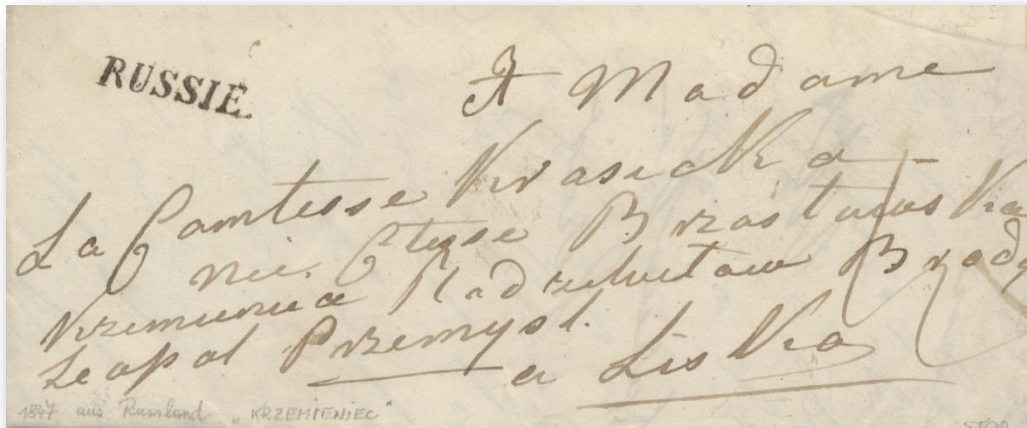 RUSSIE.
A Madame
La Comtesse Krasicka
née Ctsse Brzostowska
Krzemieniec Radziwiłow Brody
Leopol Przemysl.
a Liska
1847 aus Russland „KRZEMIENIEC"